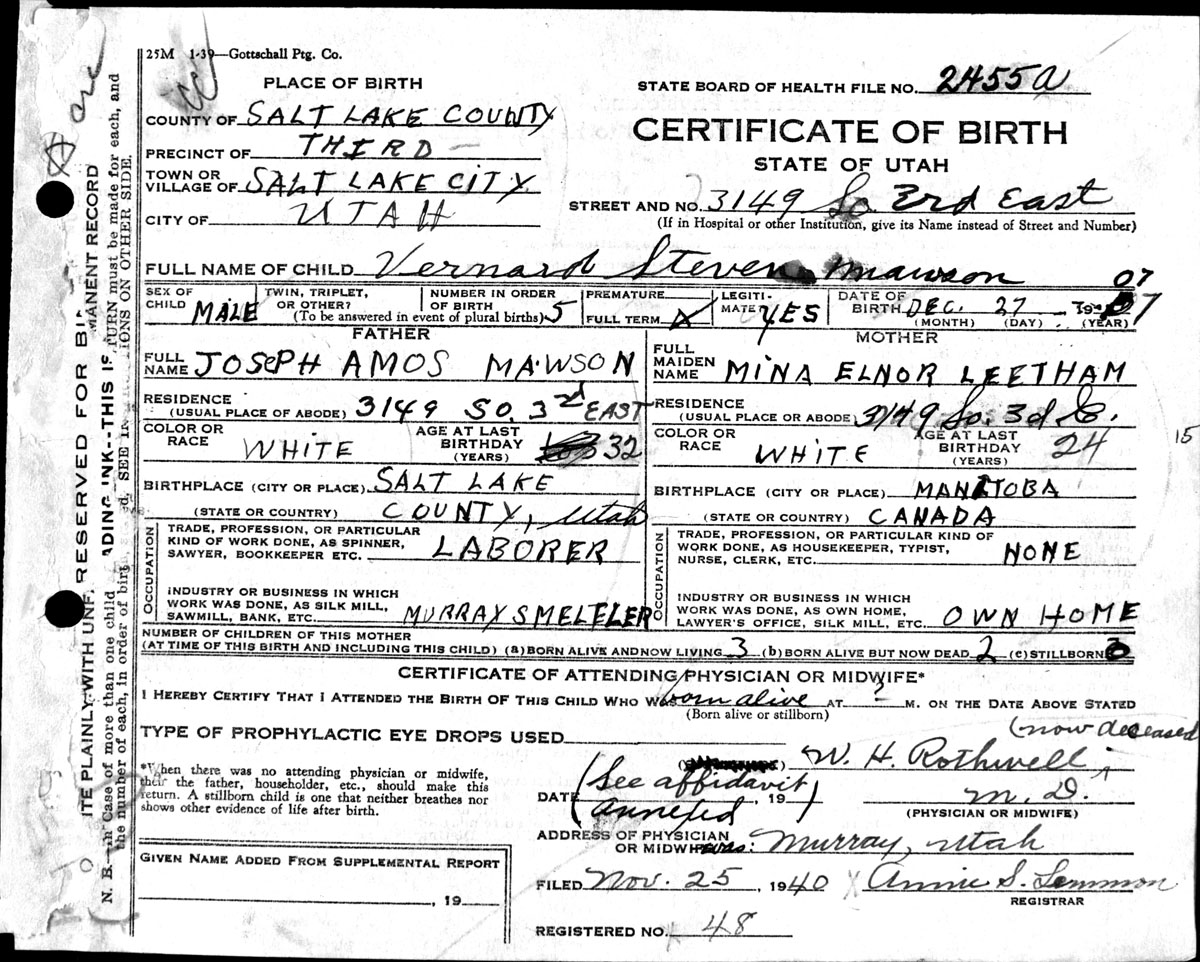 25M 1-39—Gottschall Ptg. Co.
PLACE OF BIRTH
COUNTY OF SALT LAKE COUNTY
PRECINCT OF THIRD
TOWN OR VILLAGE OF SALT LAKE CITY
CITY OF UTAH
STATE BOARD OF HEALTH FILE NO. 2455a
CERTIFICATE OF BIRTH
STATE OF UTAH
STREET AND NO. 3149 So. 3rd East
(If in Hospital or other Institution, give its Name instead of Street and Number)
FULL NAME OF CHILD Vernard Steven Mawson
07
SEX OF CHILD MALE
TWIN, TRIPLET, OR OTHER?
NUMBER IN ORDER OF BIRTH 5
(To be answered in event of plural births)
PREMATURE
FULL TERM X
LEGITIMATE? YES
DATE OF BIRTH DEC. 27 7
(MONTH) (DAY) (YEAR)
FATHER
FULL NAME JOSEPH AMOS MAWSON
RESIDENCE (USUAL PLACE OF ABODE) 3149 SO. 3rd EAST
COLOR OR RACE WHITE
AGE AT LAST BIRTHDAY (YEARS) 32
BIRTHPLACE (CITY OR PLACE) SALT LAKE
(STATE OR COUNTRY) COUNTY, Utah
OCCUPATION
TRADE, PROFESSION, OR PARTICULAR KIND OF WORK DONE, AS SPINNER, SAWYER, BOOKKEEPER ETC. LABORER
INDUSTRY OR BUSINESS IN WHICH WORK WAS DONE, AS SILK MILL, SAWMILL, BANK, ETC. MURRAY SMELELER
MOTHER
FULL MAIDEN NAME MINA ELNOR LEETHAM
RESIDENCE (USUAL PLACE OR ABODE) 3149 So. 3d E.
COLOR OR RACE WHITE
AGE AT LAST BIRTHDAY (YEARS) 24
15
BIRTHPLACE (CITY OR PLACE) MANITOBA
(STATE OR COUNTRY) CANADA
OCCUPATION
TRADE, PROFESSION, OR PARTICULAR KIND OF WORK DONE, AS HOUSEKEEPER, TYPIST, NURSE, CLERK, ETC. NONE
INDUSTRY OR BUSINESS IN WHICH WORK WAS DONE, AS OWN HOME, LAWYER'S OFFICE, SILK MILL, ETC. OWN HOME
NUMBER OF CHILDREN OF THIS MOTHER
(AT TIME OF THIS BIRTH AND INCLUDING THIS CHILD) (a) BORN ALIVE AND NOW LIVING 3 (b) BORN ALIVE BUT NOW DEAD 2 (c) STILLBORN 0
CERTIFICATE OF ATTENDING PHYSICIAN OR MIDWIFE*
I HEREBY CERTIFY THAT I ATTENDED THE BIRTH OF THIS CHILD WHO WAS born alive AT ? M. ON THE DATE ABOVE STATED
(Born alive or stillborn)
TYPE OF PROPHYLACTIC EYE DROPS USED
(now deceased)
*When there was no attending physician or midwife, their the father, householder, etc., should make this return. A stillborn child is one that neither breathes nor shows other evidence of life after birth.
W. H. Rothwell
M. D.
(PHYSICIAN OR MIDWIFE)
DATE (See affidavit annexed), 19
ADDRESS OF PHYSICIAN OR MIDWIFE Murray, Utah
GIVEN NAME ADDED FROM SUPPLEMENTAL REPORT
, 19
FILED Nov. 25, 1940 Annie S. Lemmon
REGISTRAR
REGISTERED NO. 48
ITE PLAINLY WITH UNF
RESERVED FOR BI
ADING INK--THIS IS
MANENT RECORD
N. B.—In Case of more than one child
TURN must be made for each, and
the number of each, in order of birth
SEE IN
IONS ON OTHER SIDE.